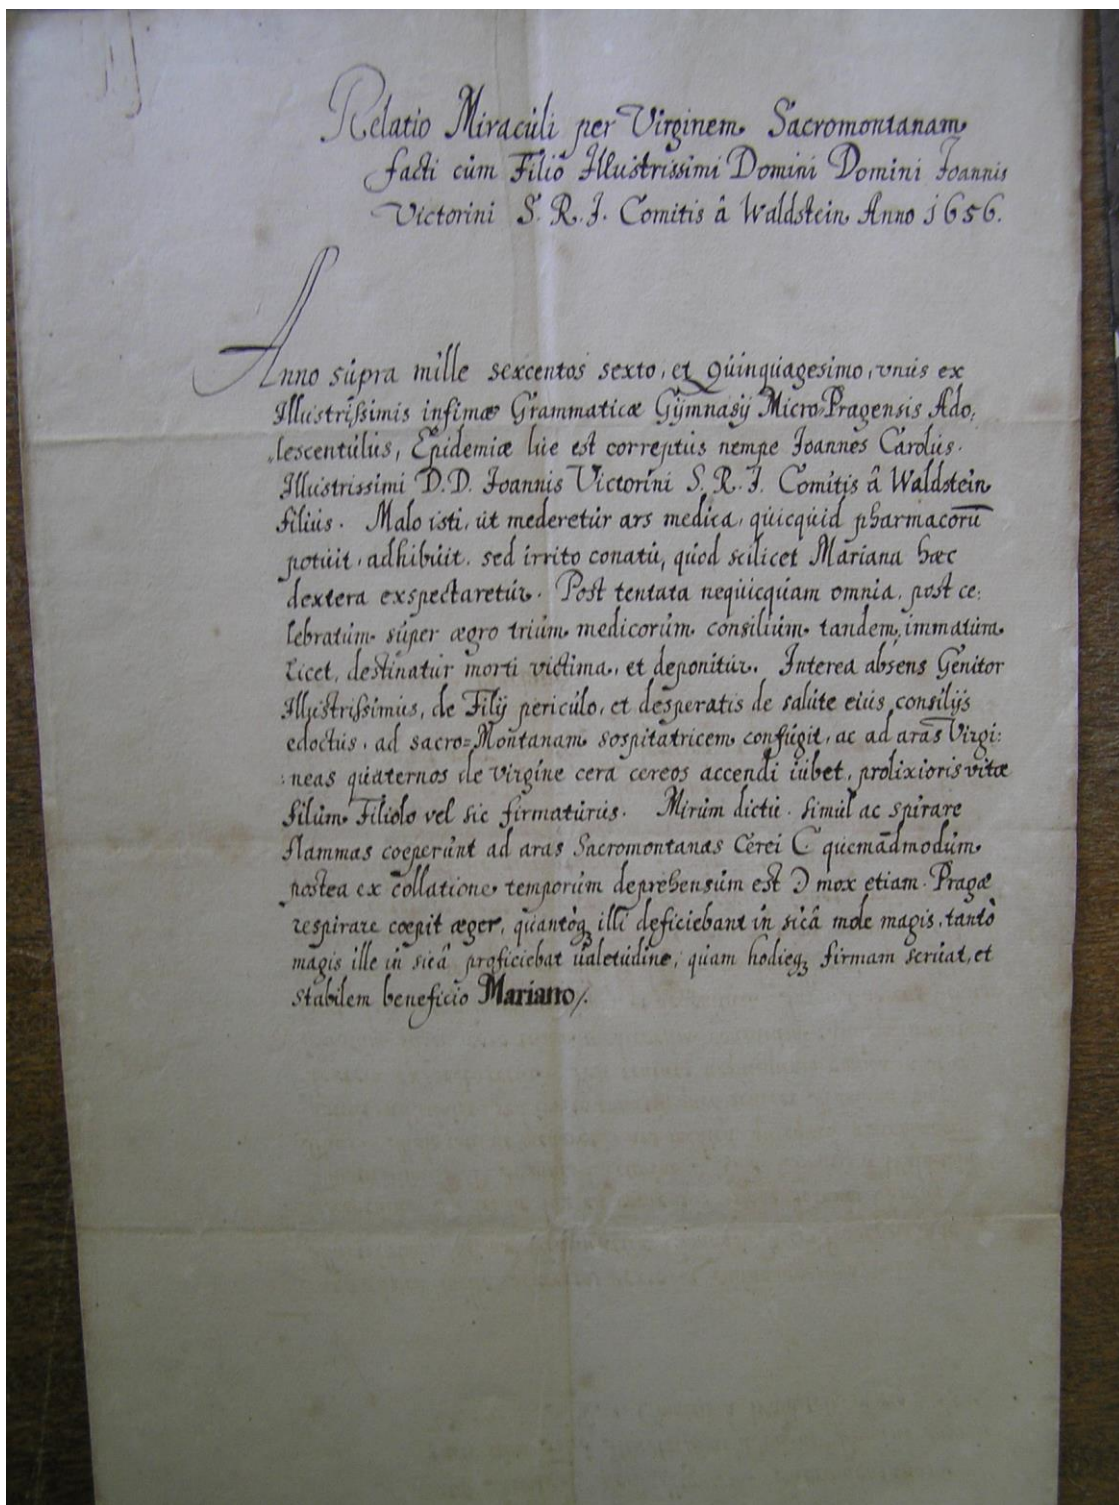 Relatio Miraculi per Virginem Sacromontanam
facti cum Filio Illustrissimi Domini Domini Joannis
Victorini S. R. J. Comitis â Waldstein Anno 1656.
Anno supra mille sexcentos sexto, et Quinquagesimo, vnus ex
Illustrissimis infimæ Grammaticæ Gymnasij Micro-Pragensis Ado:
lescentulus, Epidemiæ lue est correptus nempe Joannes Carolus.
Illustrissimi D.D. Joannis Victorini S. R. J. Comitis â Waldstein
filius. Malo isti, ut mederetur ars medica, quicquid pharmacorū
potuit, adhibuit. sed irrito conatu, quod scilicet Mariana hæc
dextera exspectaretur. Post tentata nequicquam omnia, post ce:
lebratum super ægro trium medicorum consilium tandem, immatura
licet, destinatur morti victima, et deponitur. Interea absens Genitor
Illustrissimus, de Filij periculo, et desperatis de salute eius consilijs
edoctus, ad sacro=Montanam sospitatricem confugit, ac ad aras Virgi:
:neas quaternos de virgine cera cereos accendi iubet, prolixioris vitæ
filum Filiolo vel sic firmaturus. Mirum dictu. simul ac spirare
flammas coeperunt ad aras Sacromontanas Cerei C quemādmodum
postea ex collatione temporum deprehensum est Ɔ mox etiam Pragæ
respirare coepit æger, quantoq₃ illi deficiebant in sicâ mole magis, tantò
magis ille in sicâ proficiebat ualetudine, quam hodieq₃ firmam seruat, et
stabilem beneficio Mariano/.